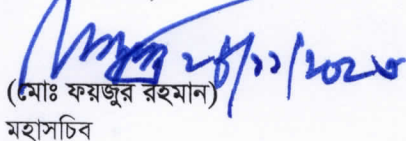 ২৮/১১/২০২৩
(মোঃ ফয়জুর রহমান)
মহাসচিব